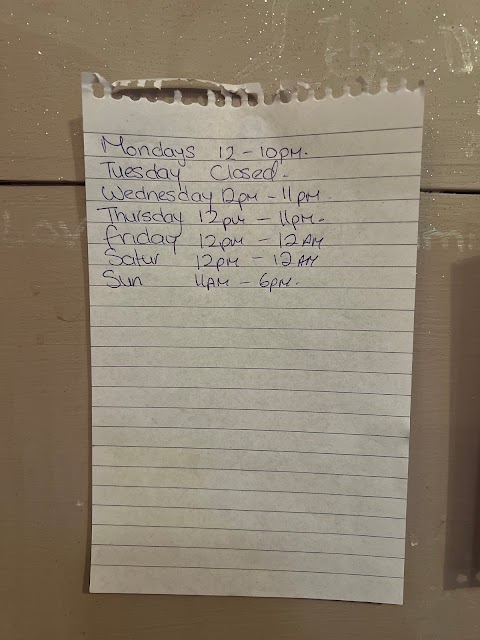 Mondays 12 - 10PM.
Tuesday Closed.
Wednesday 12pm - 11pm.
Thursday 12pm - 11pm.
friday 12pm - 12AM
Satur 12pm - 12AM
Sun 11AM - 6pm.
The